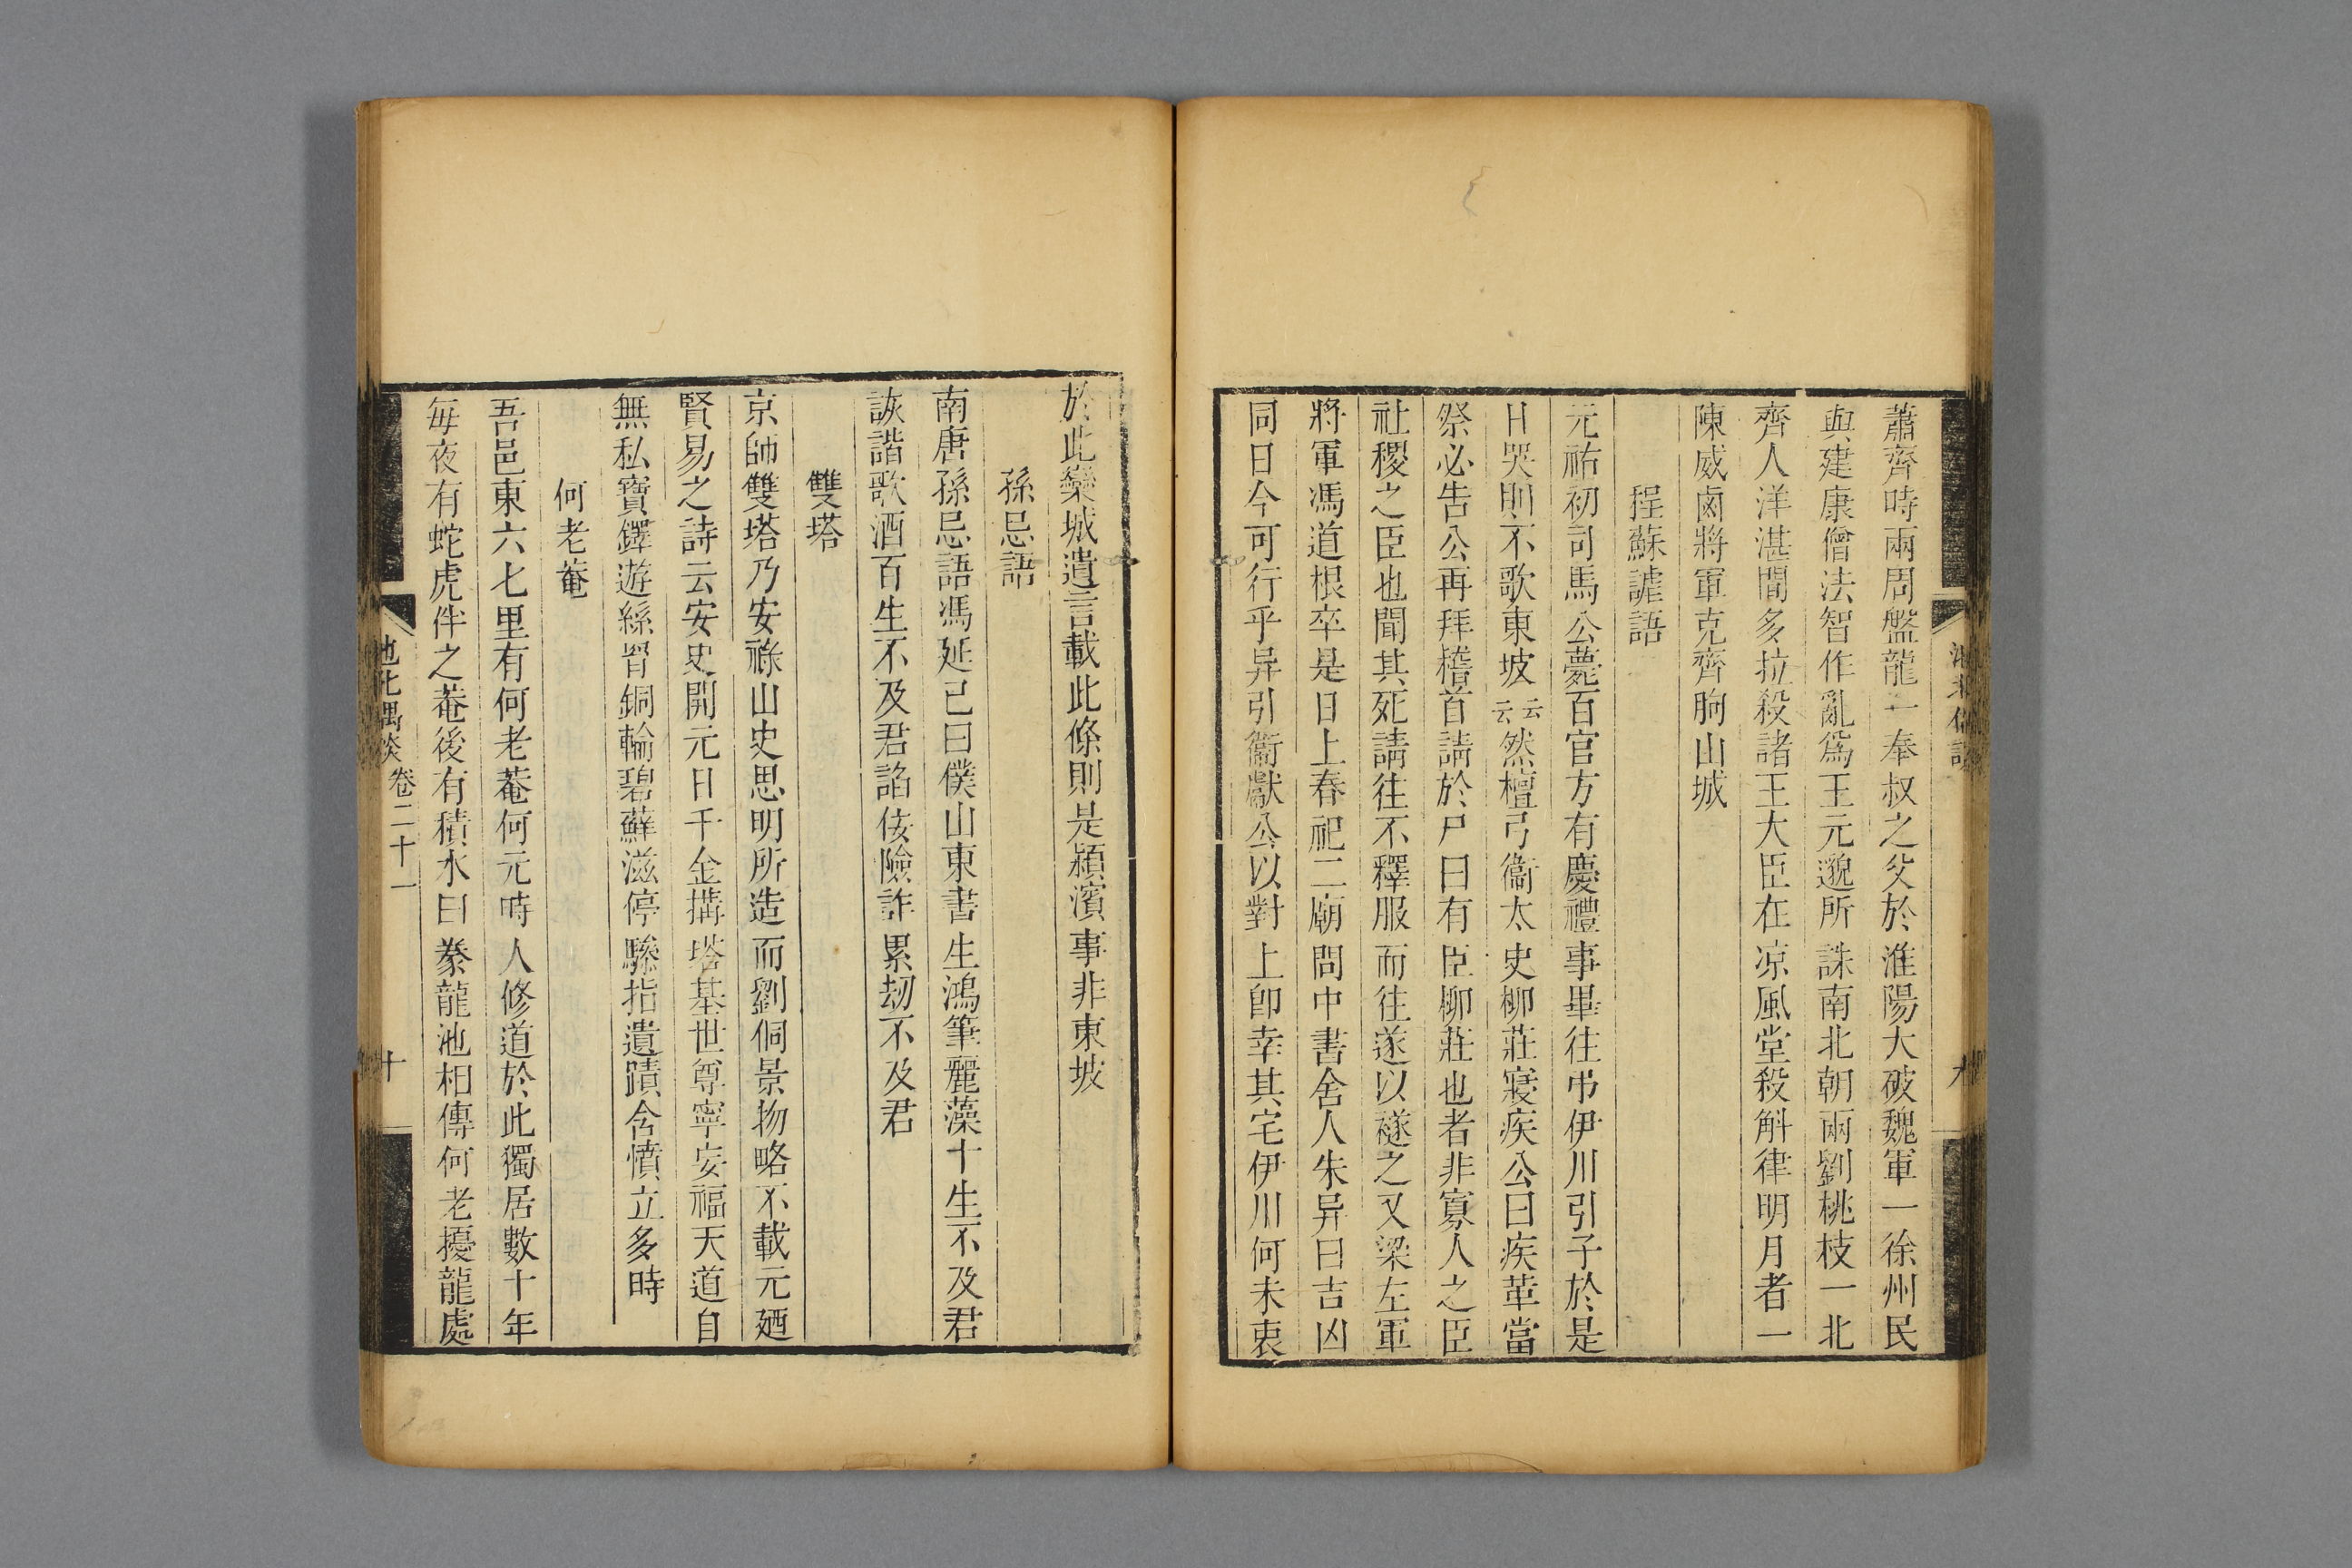 蕭齊時兩周盤龍一奉叔之父於淮陽大破魏軍一徐州民
與建康僧法智作亂爲王元邈所誅南北朝兩劉桃枝一北
齊人洋湛間多拉殺諸王大臣在凉風堂殺斛律明月者一
陳威鹵將軍克齊朐山城
程蘇謔語
元祐初司馬公薨百官方有慶禮事畢往弔伊川引子於是
日哭則不歌東坡云云然檀弓衞太史柳莊寢疾公曰疾革當
祭必告公再拜稽首請於尸曰有臣柳莊也者非寡人之臣
社稷之臣也聞其死請往不釋服而往遂以襚之又梁左軍
將軍馮道根卒是日上春祀二廟問中書舍人朱异曰吉凶
同日今可行乎异引衞獻公以對上卽幸其宅伊川何未衷
九
於此欒城遺言載此條則是潁濱事非東坡
孫忌語
南唐孫忌語馮延己曰僕山東書生鴻筆麗藻十生不及君
詼諧歌酒百生不及君諂佞險詐累刼不及君
雙塔
京師雙塔乃安祿山史思明所造而劉侗景物略不載元廼
賢易之詩云安史開元日千金搆塔基世尊寧妄福天道自
無私寶鐸遊絲罥銅輪碧蘚滋停驂指遺蹟含憤立多時
何老菴
吾邑東六七里有何老菴何元時人修道於此獨居數十年
每夜有蛇虎伴之菴後有積水曰豢龍池相傳何老擾龍處
池北偶談 卷二十一
十